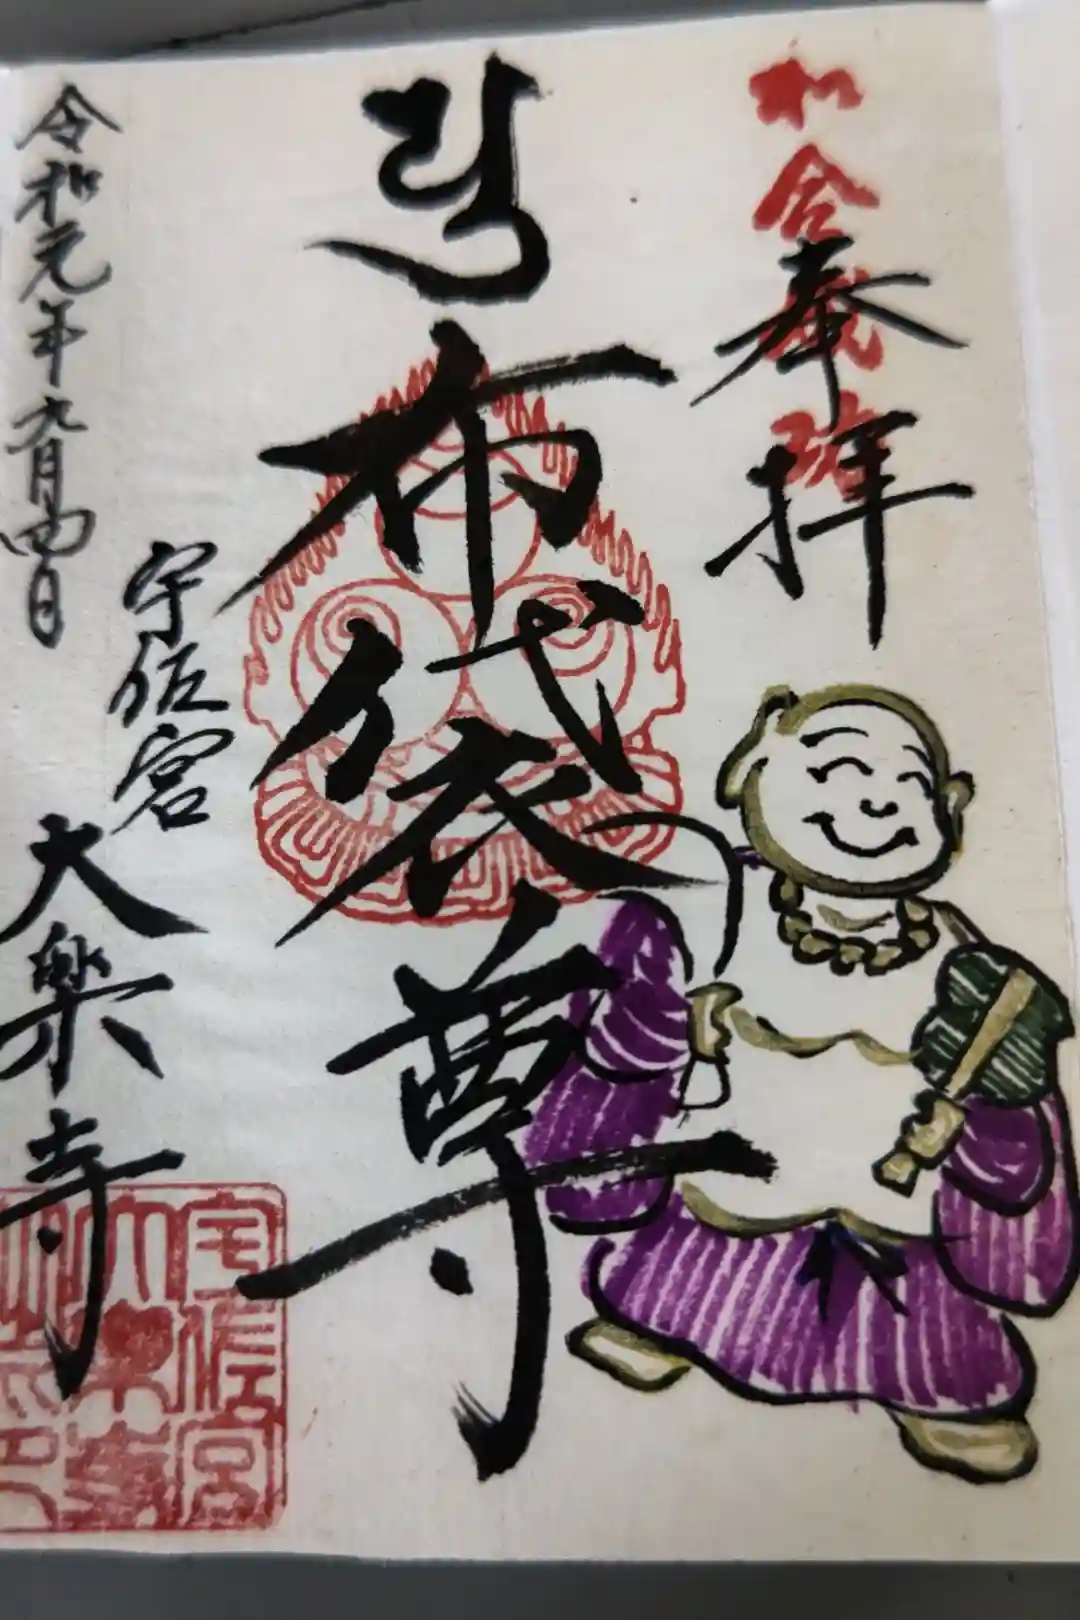 和合
奉拝
布袋尊
宇佐宮
大楽寺
令和元年九月四日
宇佐宮